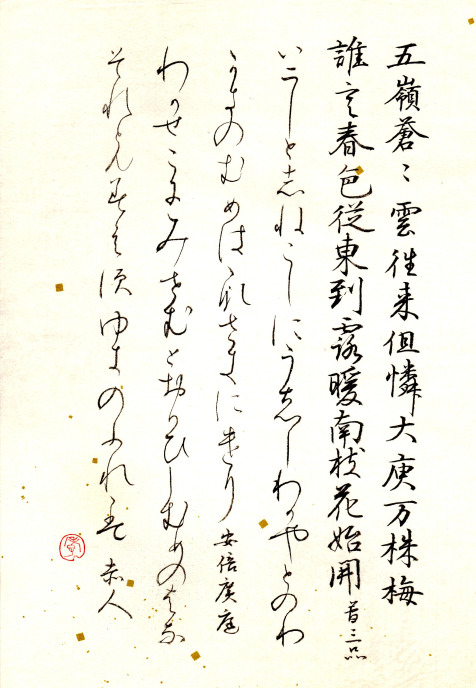 五嶺蒼〻雲往来但憐大庾万株梅
誰言春色従東到露暖南枝花始開 菅三品
いにしとしねこしにうゑしわかやとのわ
かきのむめははなさきにけり 安倍廣庭
わかせこにみせむとおもひしむめのはな
それともみえすゆきのふれれは 赤人